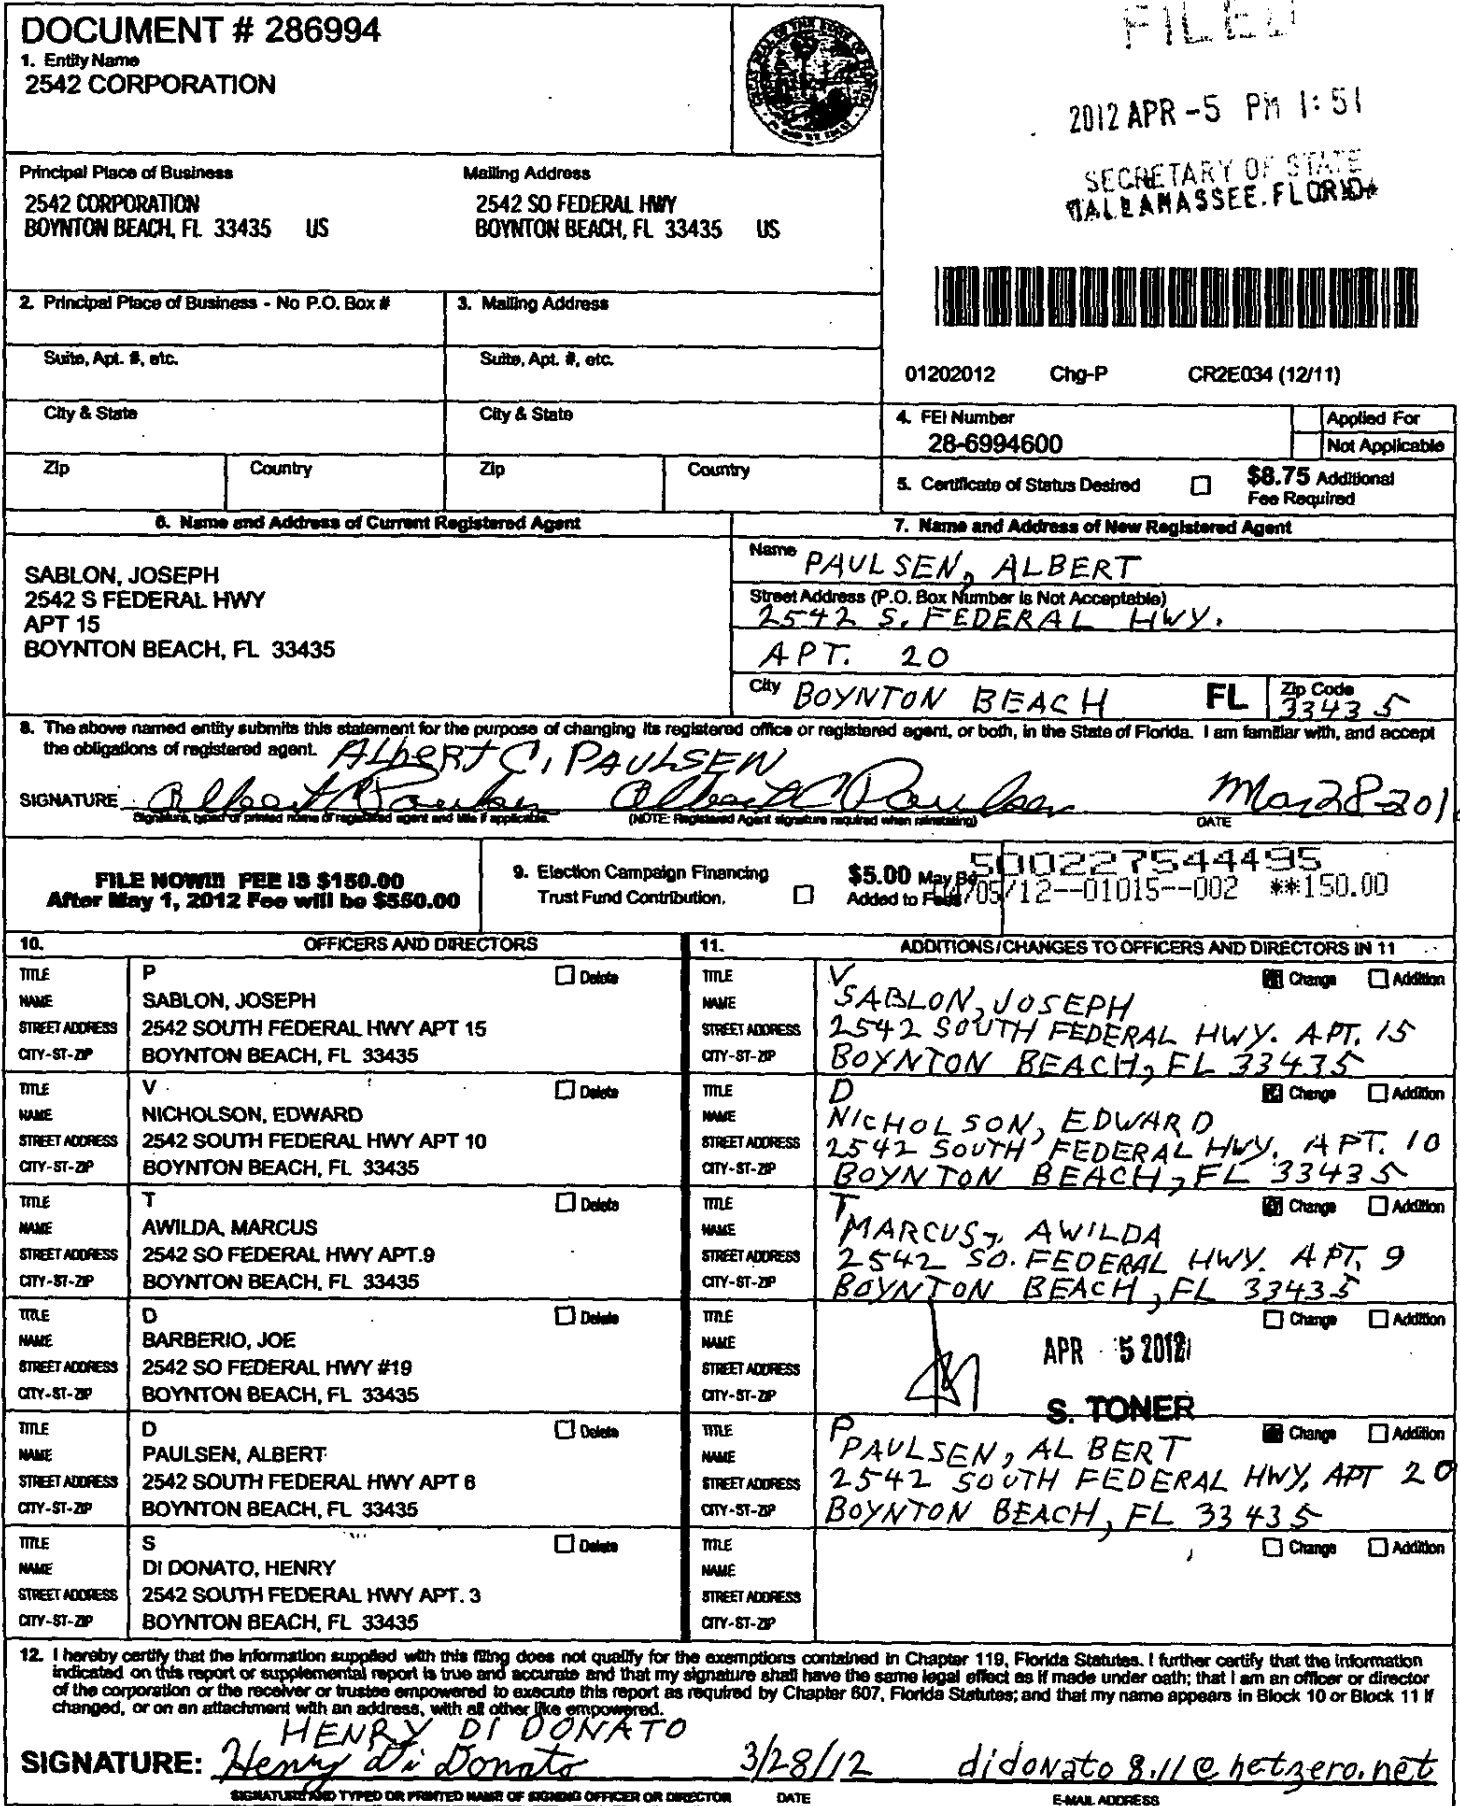 DOCUMENT # 286994
1. Entity Name
2542 CORPORATION
FILED
2012 APR -5 PM 1:51
SECRETARY OF STATE
TALLAHASSEE, FLORIDA
Principal Place of Business
2542 CORPORATION
BOYNTON BEACH, FL 33435 US
Mailing Address
2542 SO FEDERAL HWY
BOYNTON BEACH, FL 33435 US
2. Principal Place of Business - No P.O. Box #
3. Mailing Address
Suite, Apt. #, etc.
Suite, Apt. #, etc.
City & State
City & State
Zip Country
Zip Country
01202012 Chg-P CR2E034 (12/11)
4. FEI Number
28-6994600
Applied For
Not Applicable
5. Certificate of Status Desired
$8.75 Additional
Fee Required
6. Name and Address of Current Registered Agent
SABLON, JOSEPH
2542 S FEDERAL HWY
APT 15
BOYNTON BEACH, FL 33435
7. Name and Address of New Registered Agent
Name PAULSEN, ALBERT
Street Address (P.O. Box Number is Not Acceptable)
2542 S. FEDERAL HWY.
APT. 20
City BOYNTON BEACH FL Zip Code 33435
8. The above named entity submits this statement for the purpose of changing its registered office or registered agent, or both, in the State of Florida. I am familiar with, and accept
the obligations of registered agent. AlbERT C. PAULSEN
SIGNATURE Albert C Paulsen Albert C Paulsen Mar 28-201
Signature, typed or printed name of registered agent and title if applicable. (NOTE: Registered Agent signature required when reinstating) DATE
FILE NOW!!! FEE IS $150.00
After May 1, 2012 Fee will be $550.00
9. Election Campaign Financing
Trust Fund Contribution.
$5.00 May Be
Added to Fees
500227544495
04/05/12--01015--002 **150.00
10. OFFICERS AND DIRECTORS
TITLE P Delete
NAME SABLON, JOSEPH
STREET ADDRESS 2542 SOUTH FEDERAL HWY APT 15
CITY-ST-ZIP BOYNTON BEACH, FL 33435
TITLE V Delete
NAME NICHOLSON, EDWARD
STREET ADDRESS 2542 SOUTH FEDERAL HWY APT 10
CITY-ST-ZIP BOYNTON BEACH, FL 33435
TITLE T Delete
NAME AWILDA, MARCUS
STREET ADDRESS 2542 SO FEDERAL HWY APT.9
CITY-ST-ZIP BOYNTON BEACH, FL 33435
TITLE D Delete
NAME BARBERIO, JOE
STREET ADDRESS 2542 SO FEDERAL HWY #19
CITY-ST-ZIP BOYNTON BEACH, FL 33435
TITLE D Delete
NAME PAULSEN, ALBERT
STREET ADDRESS 2542 SOUTH FEDERAL HWY APT 6
CITY-ST-ZIP BOYNTON BEACH, FL 33435
TITLE S Delete
NAME DI DONATO, HENRY
STREET ADDRESS 2542 SOUTH FEDERAL HWY APT. 3
CITY-ST-ZIP BOYNTON BEACH, FL 33435
11. ADDITIONS/CHANGES TO OFFICERS AND DIRECTORS IN 11
TITLE V Change Addition
NAME SABLON, JOSEPH
STREET ADDRESS 2542 SOUTH FEDERAL HWY. APT. 15
CITY-ST-ZIP BOYNTON BEACH, FL 33435
TITLE D Change Addition
NAME NICHOLSON, EDWARD
STREET ADDRESS 2542 SOUTH FEDERAL HWY. APT. 10
CITY-ST-ZIP BOYNTON BEACH, FL 33435
TITLE T Change Addition
NAME MARCUS, AWILDA
STREET ADDRESS 2542 SO. FEDERAL HWY. APT. 9
CITY-ST-ZIP BOYNTON BEACH, FL 33435
TITLE Change Addition
NAME APR 5 2012
STREET ADDRESS
CITY-ST-ZIP S. TONER
TITLE P Change Addition
NAME PAULSEN, ALBERT
STREET ADDRESS 2542 SOUTH FEDERAL HWY, APT 20
CITY-ST-ZIP BOYNTON BEACH, FL 33435
TITLE Change Addition
NAME
STREET ADDRESS
CITY-ST-ZIP
12. I hereby certify that the information supplied with this filing does not qualify for the exemptions contained in Chapter 119, Florida Statutes. I further certify that the information
indicated on this report or supplemental report is true and accurate and that my signature shall have the same legal effect as if made under oath; that I am an officer or director
of the corporation or the receiver or trustee empowered to execute this report as required by Chapter 607, Florida Statutes; and that my name appears in Block 10 or Block 11 if
changed, or on an attachment with an address, with all other like empowered.
HENRY DI DONATO
SIGNATURE: Henry Di Donato 3/28/12 didonato8.11@netzero.net
SIGNATURE AND TYPED OR PRINTED NAME OF SIGNING OFFICER OR DIRECTOR DATE E-MAIL ADDRESS